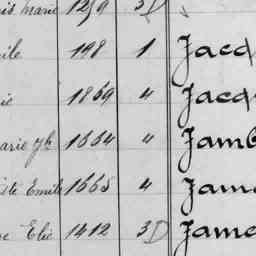 is marie 1259
ile 198 1 Jacq
ie 1869 " Jacq
arie Jh 1664 " Jamb
ste Emile 1665 4 Jame
ne Elie 1412 3D Jame